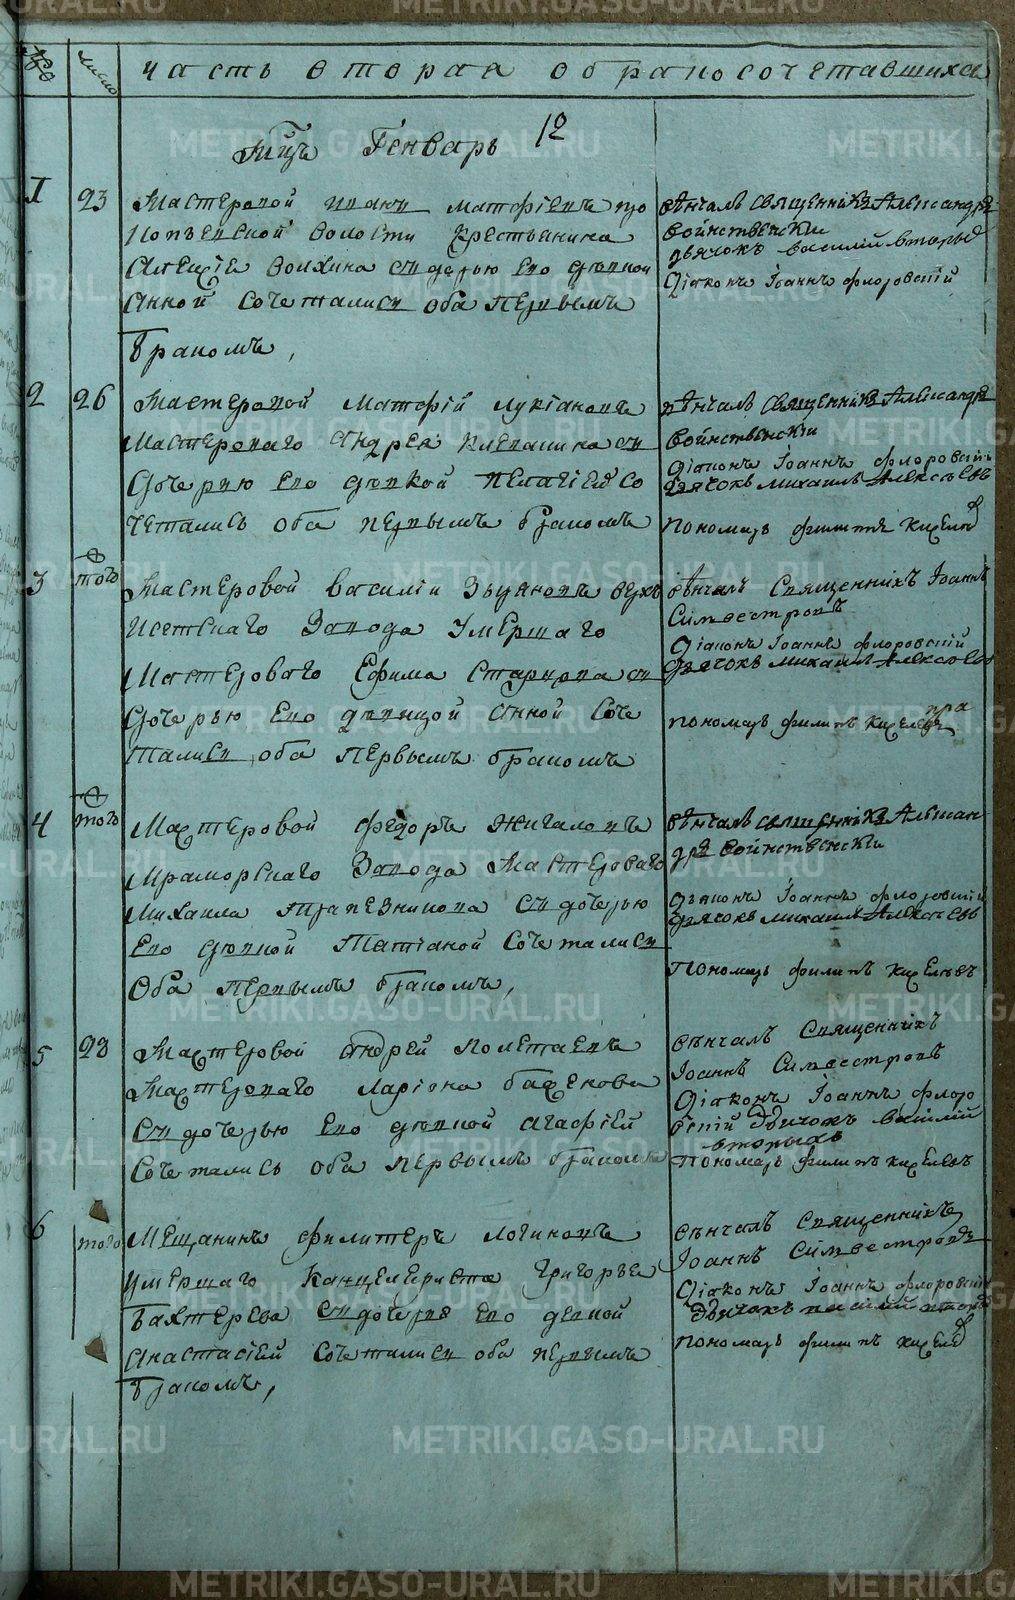 число
часть вторая о бракосочетавшихся
Мцъ Генварь 12
1 23 Мастеровой Матфіевъ
волости крестьянина
Алексіе Волхина съ дочерью его девкой
Анной сочетались оба первымъ
бракомъ,
венчалъ священникъ Александръ
воинственскіи
дьячокъ василій вторыхъ
Діаконъ Іоаннъ флоровскій
2 26 Мастеровой Матфій Лукіановъ
Мастероваго Андрея Клепалина съ
дочерью его девкой Пелагіею со
четались оба первымъ бракомъ
венчалъ священникъ Александръ
воинственскіи
Діаконъ Іоаннъ флоровскій
дьячокъ михаилъ Алексеевъ
Пономарь филиппъ Киселевъ
3 того Мастеровой василіи верхъ
Исетскаго Завода умершаго
Мастероваго Ефима съ
дочерью его девицой Анной соче
тались оба первымъ бракомъ
венчалъ Священникъ Іоаннъ
Силвестровъ
Діаконъ Іоаннъ флоровскій
дьячокъ михаилъ Алексеевъ
пономарь филипъ Киселевъ
4 того Мастеровой федоръ Жигаловъ
Мраморскаго Завода Мастероваго
Михаила Трапезникова съ дочерью
его девкой Татіаной сочетались
оба первымъ бракомъ,
венчалъ священникъ Алексан
дръ воинственскіи
Діаконъ Іоаннъ флоровскій
дьячокъ михаилъ Алексеевъ
Пономарь филипъ Киселевъ
5 28 Мастеровой Андрей Полетаевъ
Мастероваго Ларіона Баженова
съ дочерью его девкой Агафіей
сочетались оба первымъ бракомъ
венчалъ Священникъ
Іоаннъ Силвестровъ
Діаконъ Іоаннъ флоро
вскій дьячокъ василій
вторыхъ
Пономарь филипъ Киселевъ
6 того Мещанинъ филитеръ Логиновъ
умершаго Канцелериста Григорья
Бахтерева съ дочерью его девкой
Анастасіей сочетались оба первымъ
бракомъ,
венчалъ Священникъ
Іоаннъ Силвестровъ
Діаконъ Іоаннъ флоровскій
дьячокъ василій вторыхъ
пономарь филипъ Киселевъ
METRIKI.GASO-URAL.RU